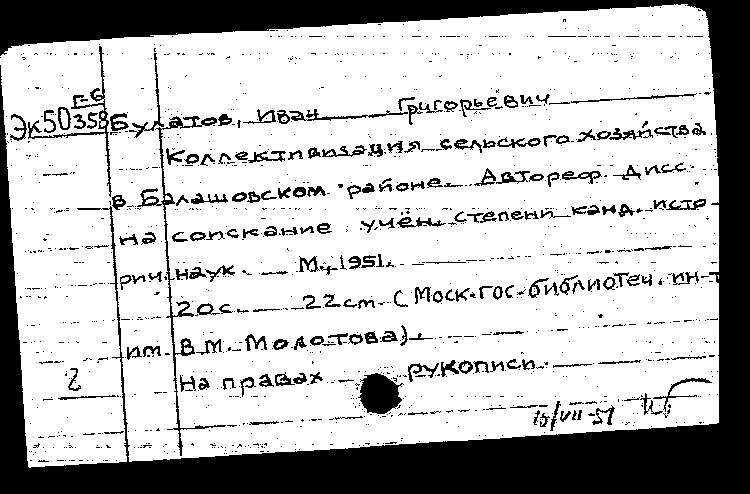 Г-6
Эк50358 Булатов, Иван Григорьевич
Коллективизация сельского хозяйства
в Балашовском районе. Автореф. дисс.
на соискание учён. степени канд. исто-
рич. наук. М., 1951.
20 с. 22 cm. (Моск. гос. библиотеч. ин-т
им. В.М. Молотова).
2 На правах рукописи.
16/VII-51